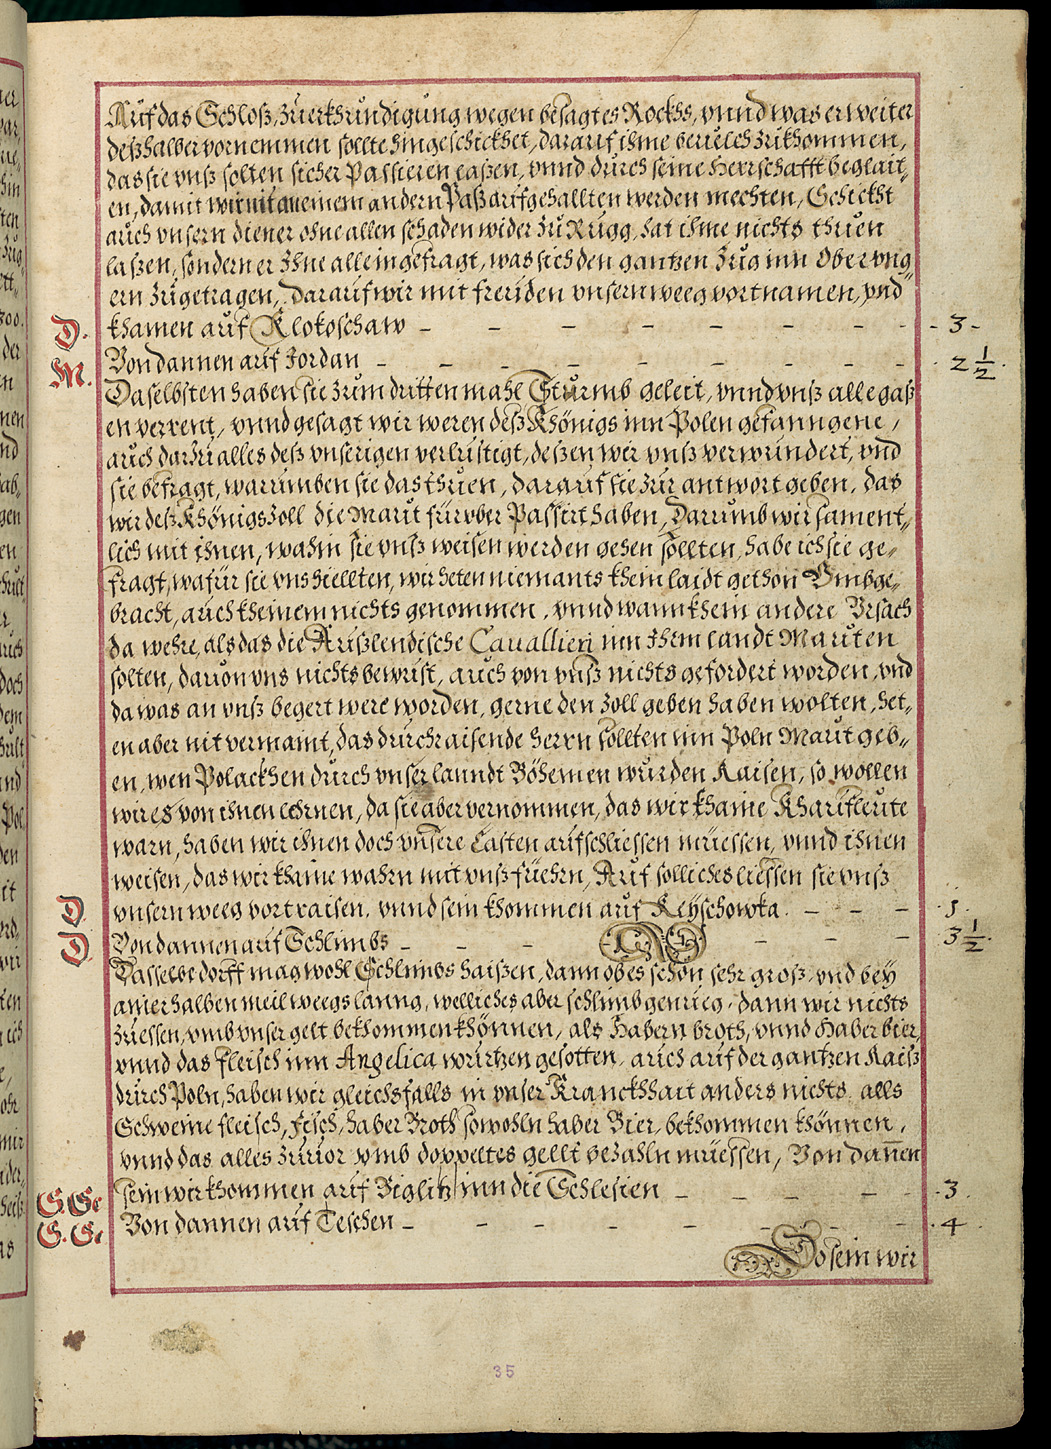 Auf das Schloß, zuerkhundigung wegen besagtes Rockhs, vnnd was er weiter
deßhalber vornemmen sollte hingeschickhet, darauf ihme beuelch zukhommen,
das sie vnß solten sicher Passieren laßen, vnnd durch seine Herrschafft beglait„
en, damit wir nit an einem andern Paß aufgehallten werden mechten, Schickht
auch vnsern diener ohne allen schaden wider zu Rugg, hat ihme nichts thuen
laßen, sondern er Ihne allein gefragt, was sich den gantzen Zug inn Ober vng„
ern zugetragen, darauf wir mit freuden vnsern weeg vort namen, vnd
D. khamen auf Klokoschaw - 3 -
M. Von dannen auf Jordan - 2 1/2
Daselbsten haben sie zum dritten mahl Sturmb geleit, vnnd vnß alle gaß
en verrent, vnnd gesagt wir weren deß Khönigs inn Polen gefanngene,
auch darzu alles deß vnserigen verlustigt, deßen wir vnß verwundert, vnd
sie befragt, warumben sie das thuen, darauf sie zur antwort geben, das
wir deß Khönigs Zoll die Maut fürüber Passirt haben, Darrumb wir sament„
lich mit ihnen, wahin sie vnß weisen werden gehen sollten, habe ich sie ge„
fragt, wafür sie vns hiellten, wir heten niemants khein laidt gethon Vmbge„
bracht, auch kheinem nichts genommen, vnnd wann khein andere Vrsach
da wehre, als das die Außlendische Cauallieri inn Ihrm landt Mauten
solten, dauon vns nichts bewust, auch von vnß nichts gefordert worden, vnd
da was an vnß begert were worden, gerne den Zoll geben haben wolten, het„
en aber nit vermaint, das durchraisende herrn sollten inn Poln Maut geb„
en, wen Polackhen durch vnser lanndt Böhemen wurden Raisen, so wollen
wir es von ihnen lehrnen, da sie aber vernommen, das wir khaine Khaufleute
warn, haben wir ihnen doch vnsere Casten aufschliessen müessen, vnnd ihnen
weisen, das wir khaine wahrn mit vnß füehrn, Auf solliches liessen sie vnß
D vnsern weeg vort raisen, vnnd sein khommen auf Reyschowka. -
D Von dannen auf Schlimbs - 3 1/2
Dasselbe dorff mag wohl Schlimbs haißen, dann ob es schon sehr groß, vnd bey
aner halben meil weegs lanng, welliches aber schlimb genueg, dann wir nichts
zuessen, vmb vnser gelt bekhommen khönnen, als Habern broth, vnnd Haber bier,
vnnd das fleisch inn Angelica wurtzen gesotten, auch auf der gantzen Raiß
durch Poln, haben wir gleichsfalls in vnser Kranckhhait anders nichts alls
Schweine fleisch, fisch, haber Broth sowohln haber Bier, bekhommen khönnen,
vnnd das alles zuuor vmb doppeltes gellt bezahln müessen, Von dannen
S. Se sein wir khommen auf Biglitz inn die Schlesien - 3
S. Se Von dannen auf Teschen - 4
Do sein wir
35